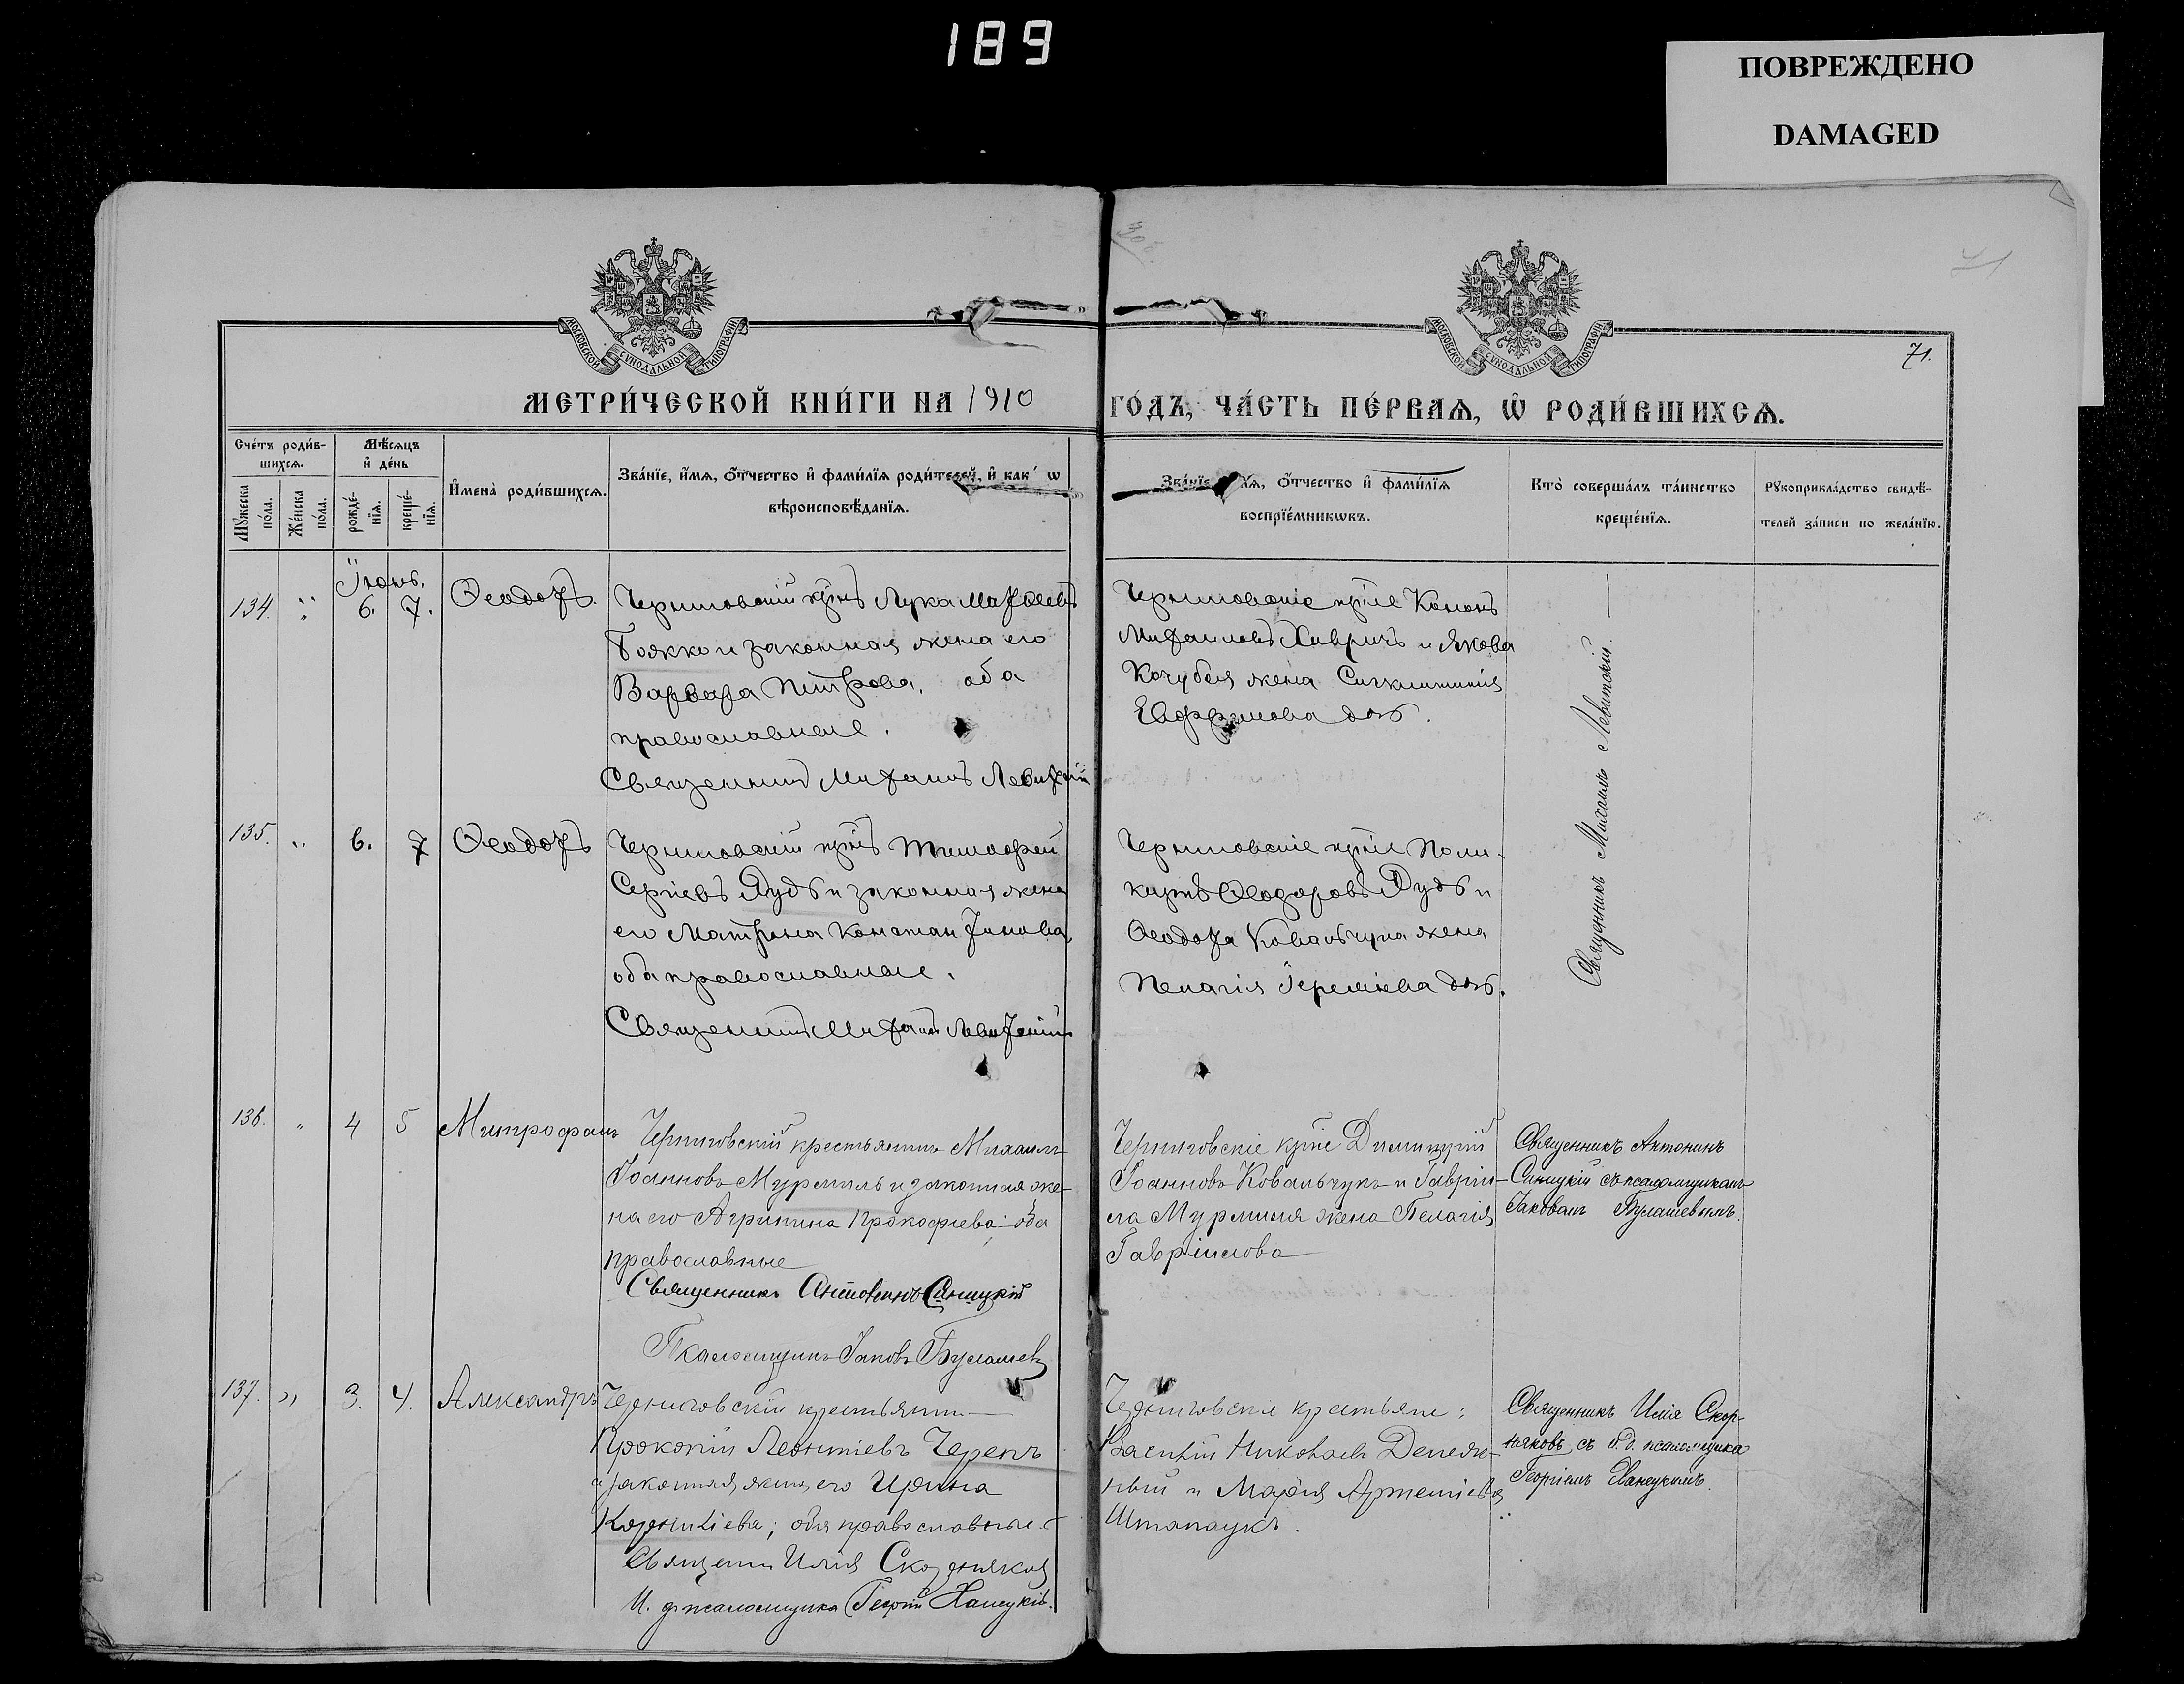 189
ПОВРЕЖДЕНО
DAMAGED
МОСКОВСКОЙ СѴНОДАЛЬНОЙ ТИПОГРАФІИ
МОСКОВСКОЙ СѴНОДАЛЬНОЙ ТИПОГРАФІИ
71.
МЕТРИ́ЧЕСКОЙ КНИ́ГИ НА 1910
ГО́ДЪ, ЧА́СТЬ ПЕ́РВАѦ, Ѡ҆ РОДИ́ВШИХСѦ.
Сче́тъ роди́в-
шихсѧ.
Мѣ́сѧцъ
и҆ де́нь
Мꙋ́жеска по́ла.
Же́нска по́ла.
рожде́-
нїѧ.
креще́-
нїѧ.
И҆мена̀ роди́вшихсѧ.
Зва́нїе, и҆́мѧ, ѻ҆́тчество и҆ фами́лїѧ роди́телей, и҆ как ѡ
вѣроисповѣ́данїѧ.
Зва́нїе ѻ҆́тчество и҆ фами́лїѧ
воспрїе́мникѡвъ.
Кто̀ соверша́лъ та́инство
креще́нїѧ.
Рꙋкоприкла́дство свидѣ́-
телей за́писи по жела́нїю.
134. " Іюнь. 6. 7. Ѳеодоръ.
Черниговскій кр-нъ Лука
Божко и законная жена его
Варвара Петрова, оба
православные.
Священникъ Михаилъ Левитскій
Черниговскіе кр-не Кононъ
Михаиловъ Хавричъ и Якова
Кочубея жена Синклитикія
дочь.
Священникъ Михаилъ Левитскій.
135. " 6. 7 Ѳеодоръ
Черниговскій кр-нъ Тимофей
Сергіевъ Дудъ и законная жена
его Матрона Константинова,
оба православные.
Священникъ Михаилъ Левитскій
Черниговскіе кр-не Поли-
карпъ Ѳеодоровъ Дудъ и
Ѳеодора Ковальчука жена
Пелагія Іереміева дочь.
136. " 4 5 Митрофанъ
Черниговскій крестьянинъ Михаилъ
Іоанновъ Мурмиль и законная же-
на его Агрипина Прокофіева: оба
православные
Священникъ Антонинъ Синицкій
Псаломщикъ Іаковъ Булашевъ
Черниговскіе кр-не Димитрій
Іоанновъ Ковальчукъ и Гавріи-
ла Мурмиля жена Пелагія
Гавріилова
Священникъ Антонинъ
Синицкій съ псаломщикомъ
Іаковомъ Булашевымъ.
137. " 3. 4. Александръ
Черниговскій крестьянинъ
Прокопій Леонтіевъ Черепъ
и законная жена его Ирина
Корниліева; оба православные.
Священникъ Илія Скорняковъ
И. д. псаломщика Георгій
Черниговскіе крестьяне:
Василій Николаевъ
и Марія Артеміева
Священникъ Илія Скор-
няковъ, съ и. д. псаломщика
Георгіемъ